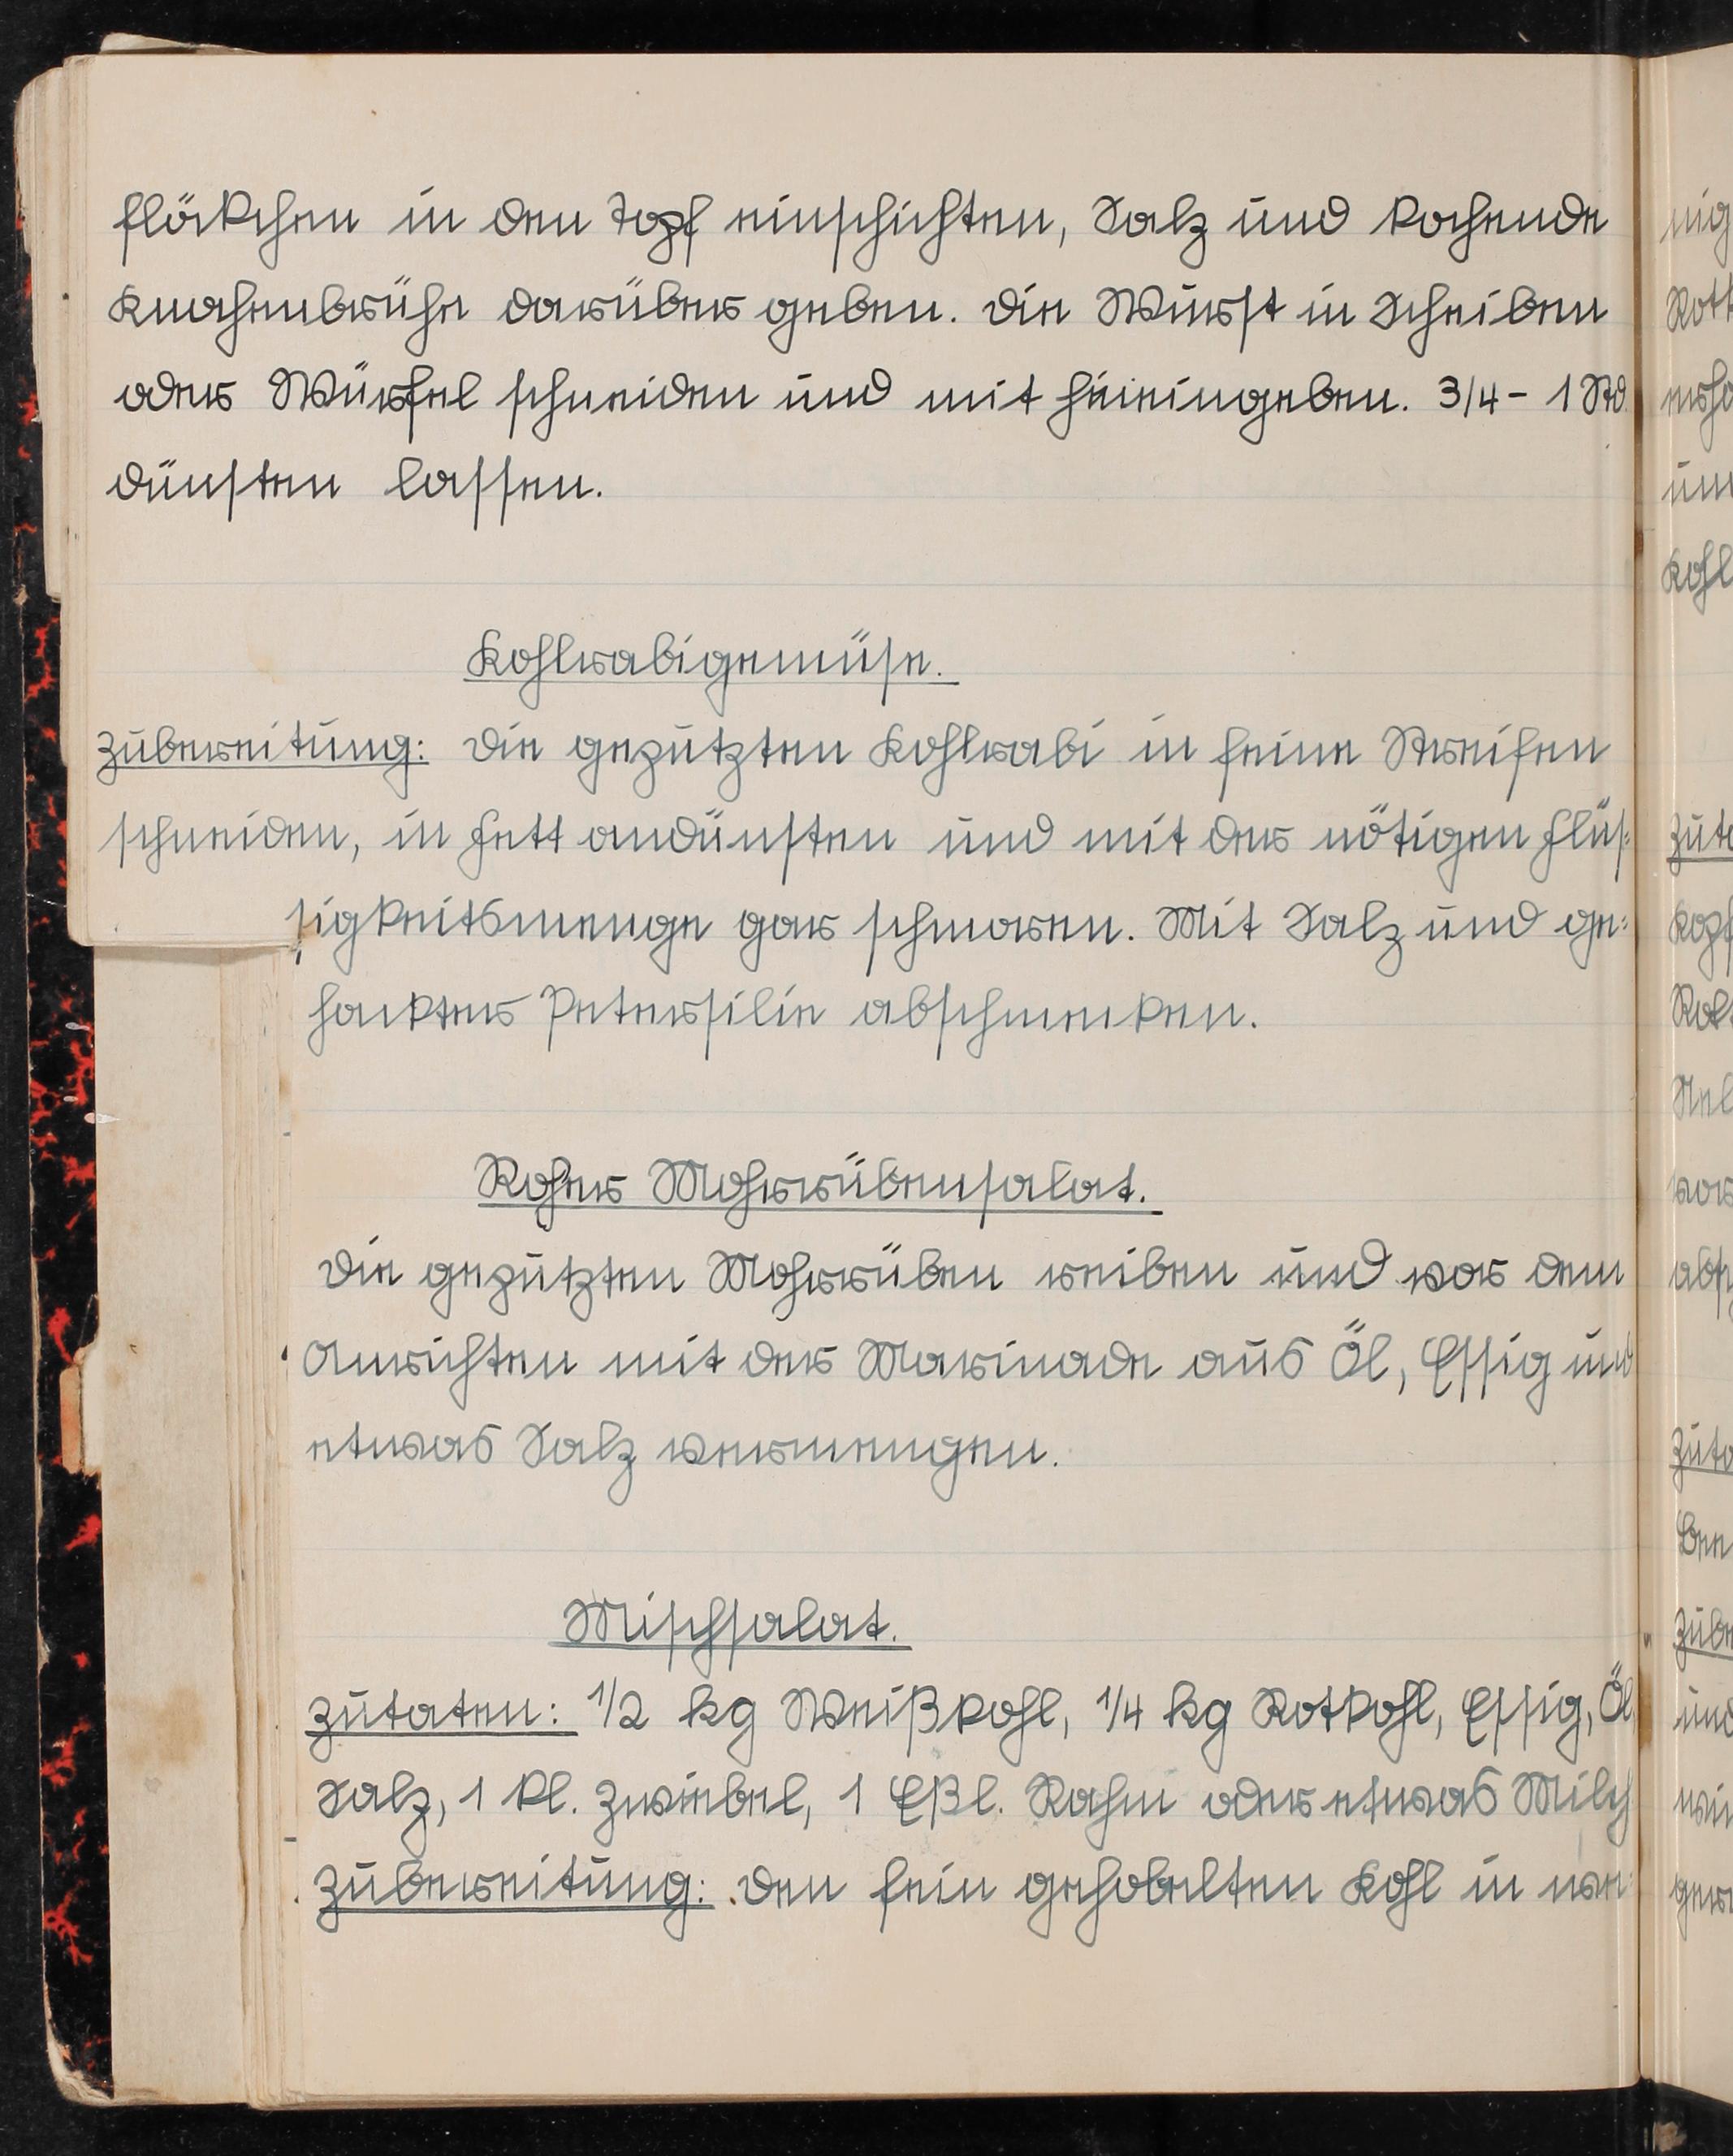 flöckchen in den Topf einschichten, Salz und kochende
Knochenbrühe darüber geben. Die Wurst in Scheiben
oder Würfel schneiden und mit hineingeben. 3/4 - 1 Std.
dünsten lassen.
Kohlrabigemüse.
Zubereitung: Die geputzten Kohlrabi in feine Streifen
schneiden, in Fett andünsten und mit der nötigen Flüs-
sigkeitsmenge gar schmoren. Mit Salz und ge-
hackter Petersilie abschmecken.
Roher Mohrrübensalat.
Die geputzten Mohrrüben reiben und vor dem
Anrichten mit der Marinade aus Öl, Essig und
etwas Salz vermengen.
Mischsalat.
Zutaten: 1/2 kg Weißkohl, 1/4 kg Rotkohl, Essig, Öl,
Salz, 1 kl. Zwiebel, 1 Eßl. Rahm oder etwas Milch
Zubereitung: Den fein gehobelten Kohl in we-